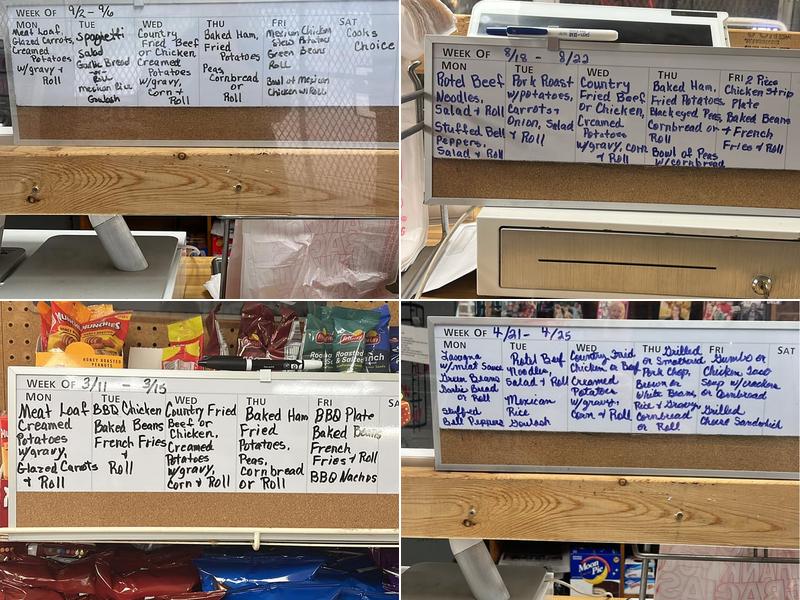 WEEK OF 9/2 - 9/6
MON TUE WED THU FRI SAT
Meat Loaf,
Glazed Carrots,
Creamed
Potatoes
w/gravy &
Roll
Spaghetti
Salad
Garlic Bread
or
Mexican Rice
Goulash
Country
Fried Beef
or Chicken,
Creamed
Potatoes
w/gravy,
Corn & Roll
Baked Ham,
Fried
Potatoes
Peas,
Cornbread
or
Roll
Mexican Chicken
Stew Potatoes
Green Beans
Roll
Bowl of Mexican
Chicken w/Roll
Cooks
Choice
WEEK OF 8/18 - 8/22
MON TUE WED THU FRI
Rotel Beef
Noodles,
Salad & Roll
Stuffed Bell
Peppers,
Salad & Roll
Pork Roast
w/potatoes,
Carrots &
Onion, Salad
& Roll
Country
Fried Beef
or Chicken,
Creamed
Potatoes
w/gravy, corn
& Roll
Baked Ham,
Fried Potatoes
Blackeyed Peas,
Cornbread or
Roll
Bowl of Peas
w/cornbread
2 Piece
Chicken Strip
Plate
Baked Beans
& French
Fries & Roll
WEEK OF 3/11 - 3/15
MON TUE WED THU FRI SA
Meat Loaf
Creamed
Potatoes
w/gravy,
Glazed Carots
& Roll
BBQ Chicken
Baked Beans
French Fries
&
Roll
Country Fried
Beef or
Chicken,
Creamed
Potatoes
w/gravy,
Corn & Roll
Baked Ham
Fried
Potatoes,
Peas,
Cornbread
or Roll
BBQ Plate
Baked Beans
French
Fries & Roll
BBQ Nachos
WEEK OF 4/21 - 4/25
MON TUE WED THU FRI SA
Lasagna
w/meat Sauce
Green Beans
Garlic Bread
or Roll
Stuffed
Bell Peppers
Rotel Beef
Noodles,
Salad & Roll
Mexican
Rice
Goulash
Country Fried
Chicken or Beef
Creamed
Potatoes
w/gravy,
Corn & Roll
Grilled
or Smothered
Pork Chop,
Brown or
White Beans,
Rice & Gravy
Cornbread
or Roll
Gumbo or
Chicken Taco
Soup w/crackers
or Cornbread
Grilled
Cheese Sandwich
MUNCHIES
MUNCHIES
HONEY ROASTED
PEANUTS
Roasted
Moon
Pie